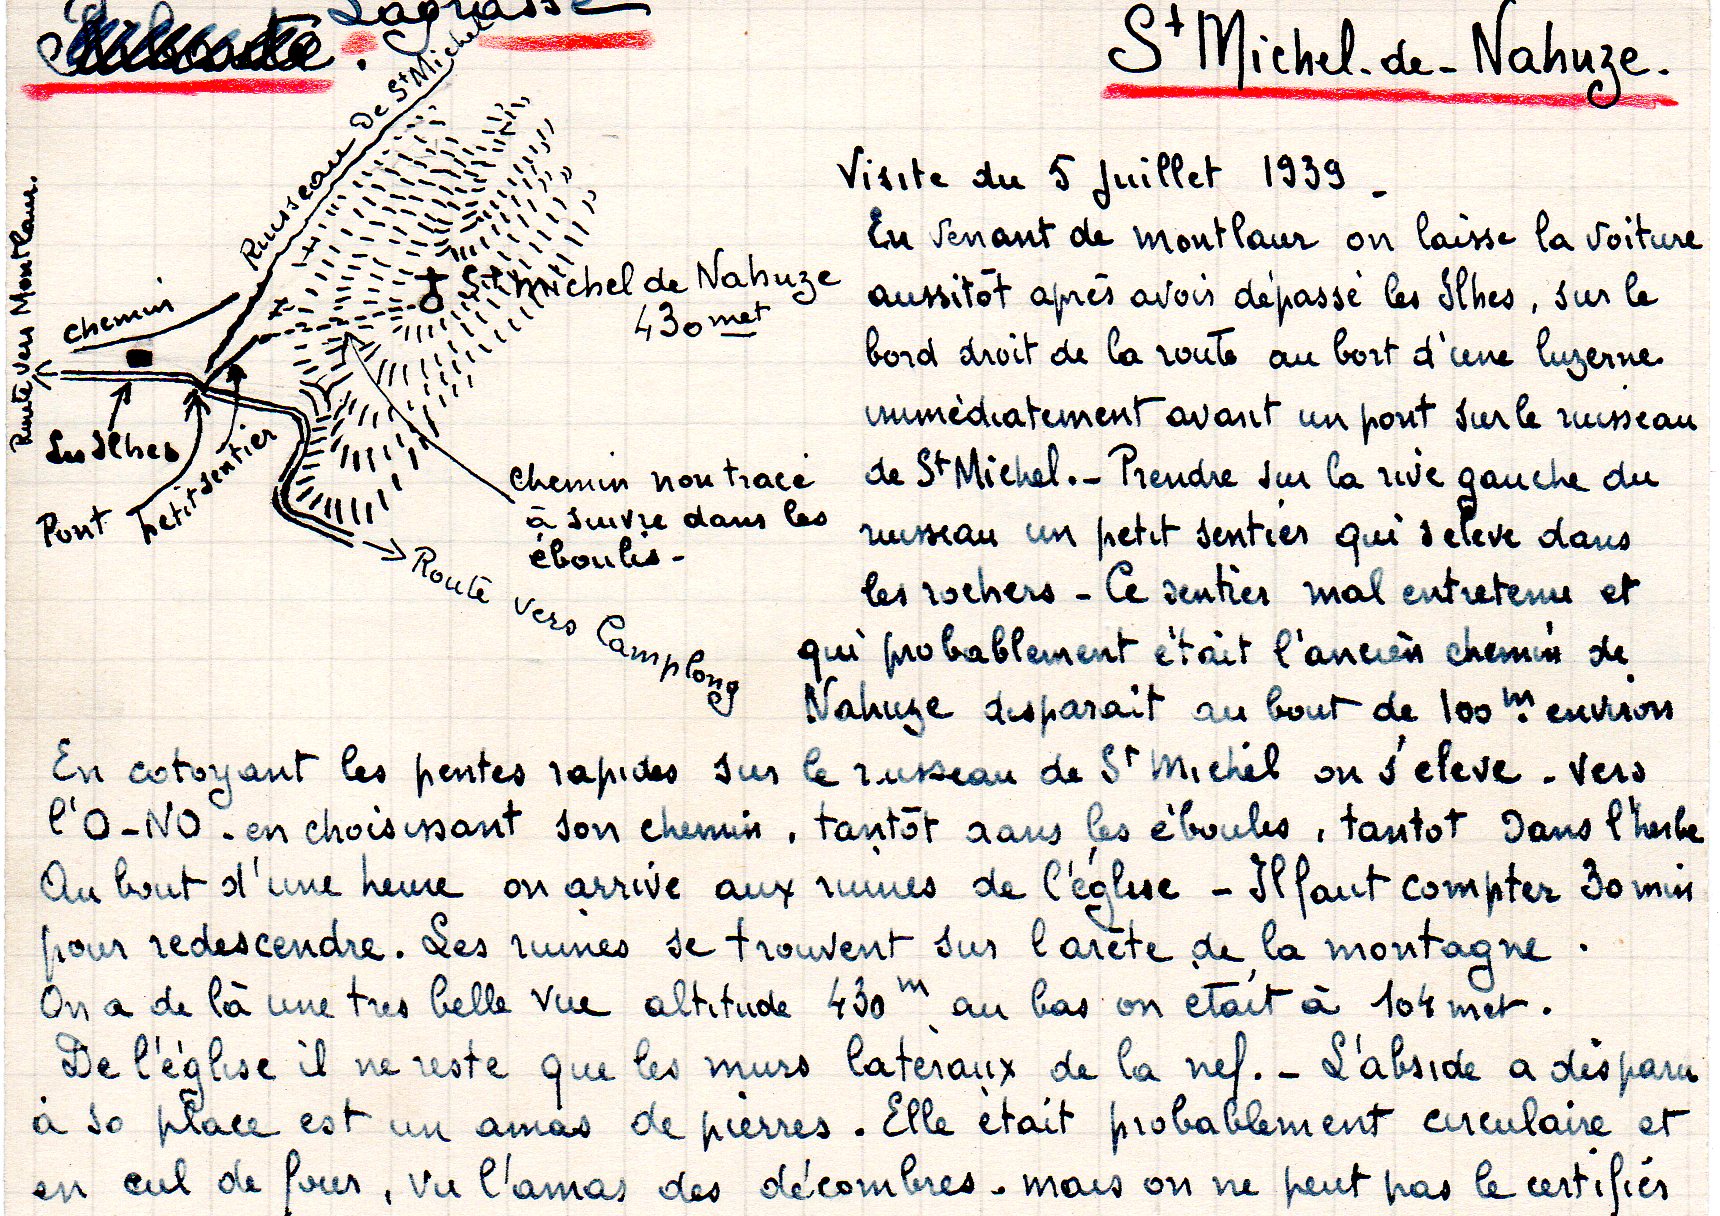 Lagrasse
St Michel-de-Nahuze.
Ruisseau De St Michel
Route vers Montlaur.
chemin
St Michel de Nahuze
430 met
Les Ilhes
Pont
petit sentier
chemin non tracé
à suivre dans les
éboulis -
Route vers Camplong
Visite du 5 Juillet 1939 -
En venant de montlaur on laisse la voiture
aussitôt après avoir dépassé les Ilhes, sur le
bord droit de la route au bort d'une luzerne
immédiatement avant un pont sur le ruisseau
de St Michel. - Prendre sur la rive gauche du
ruisseau un petit sentier qui s'eleve dans
les rochers - Ce sentier mal entretenu et
qui probablement était l'ancien chemin de
Nahuze disparait au bout de 100m. environ
En cotoyant les pentes rapides sur le ruisseau de St Michel on s'eleve - vers
l'O-NO - en choisissant son chemin, tantôt dans les éboulis, tantot Dans l'herbe
Au bout d'une heure on arrive aux ruines de l'église - Il faut compter 30 min
pour redescendre. Les ruines se trouvent sur l'arête de la montagne.
On a de là une tres belle vue altitude 430m au bas on était à 104 met.
De l'église il ne reste que les murs lateraux de la nef. - L'abside a disparu
à sa place est un amas de pierres. Elle était probablement circulaire et
en cul de four, vu l'amas des décombres. mais on ne peut pas le certifier